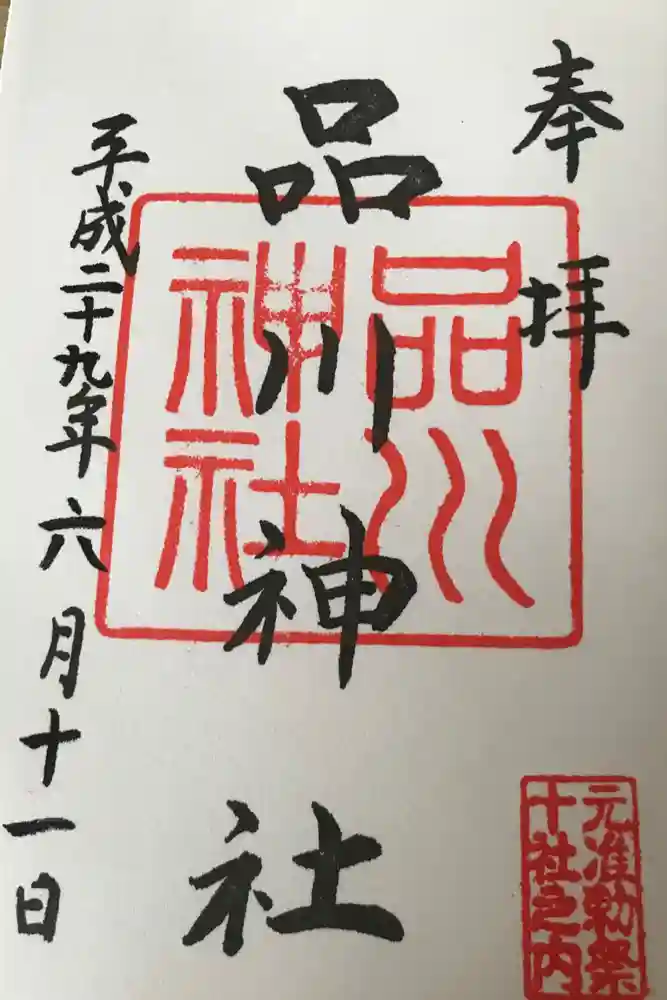 奉拝
品川神社
品川神社
平成二十九年六月十一日
元准勅祭
十社之内